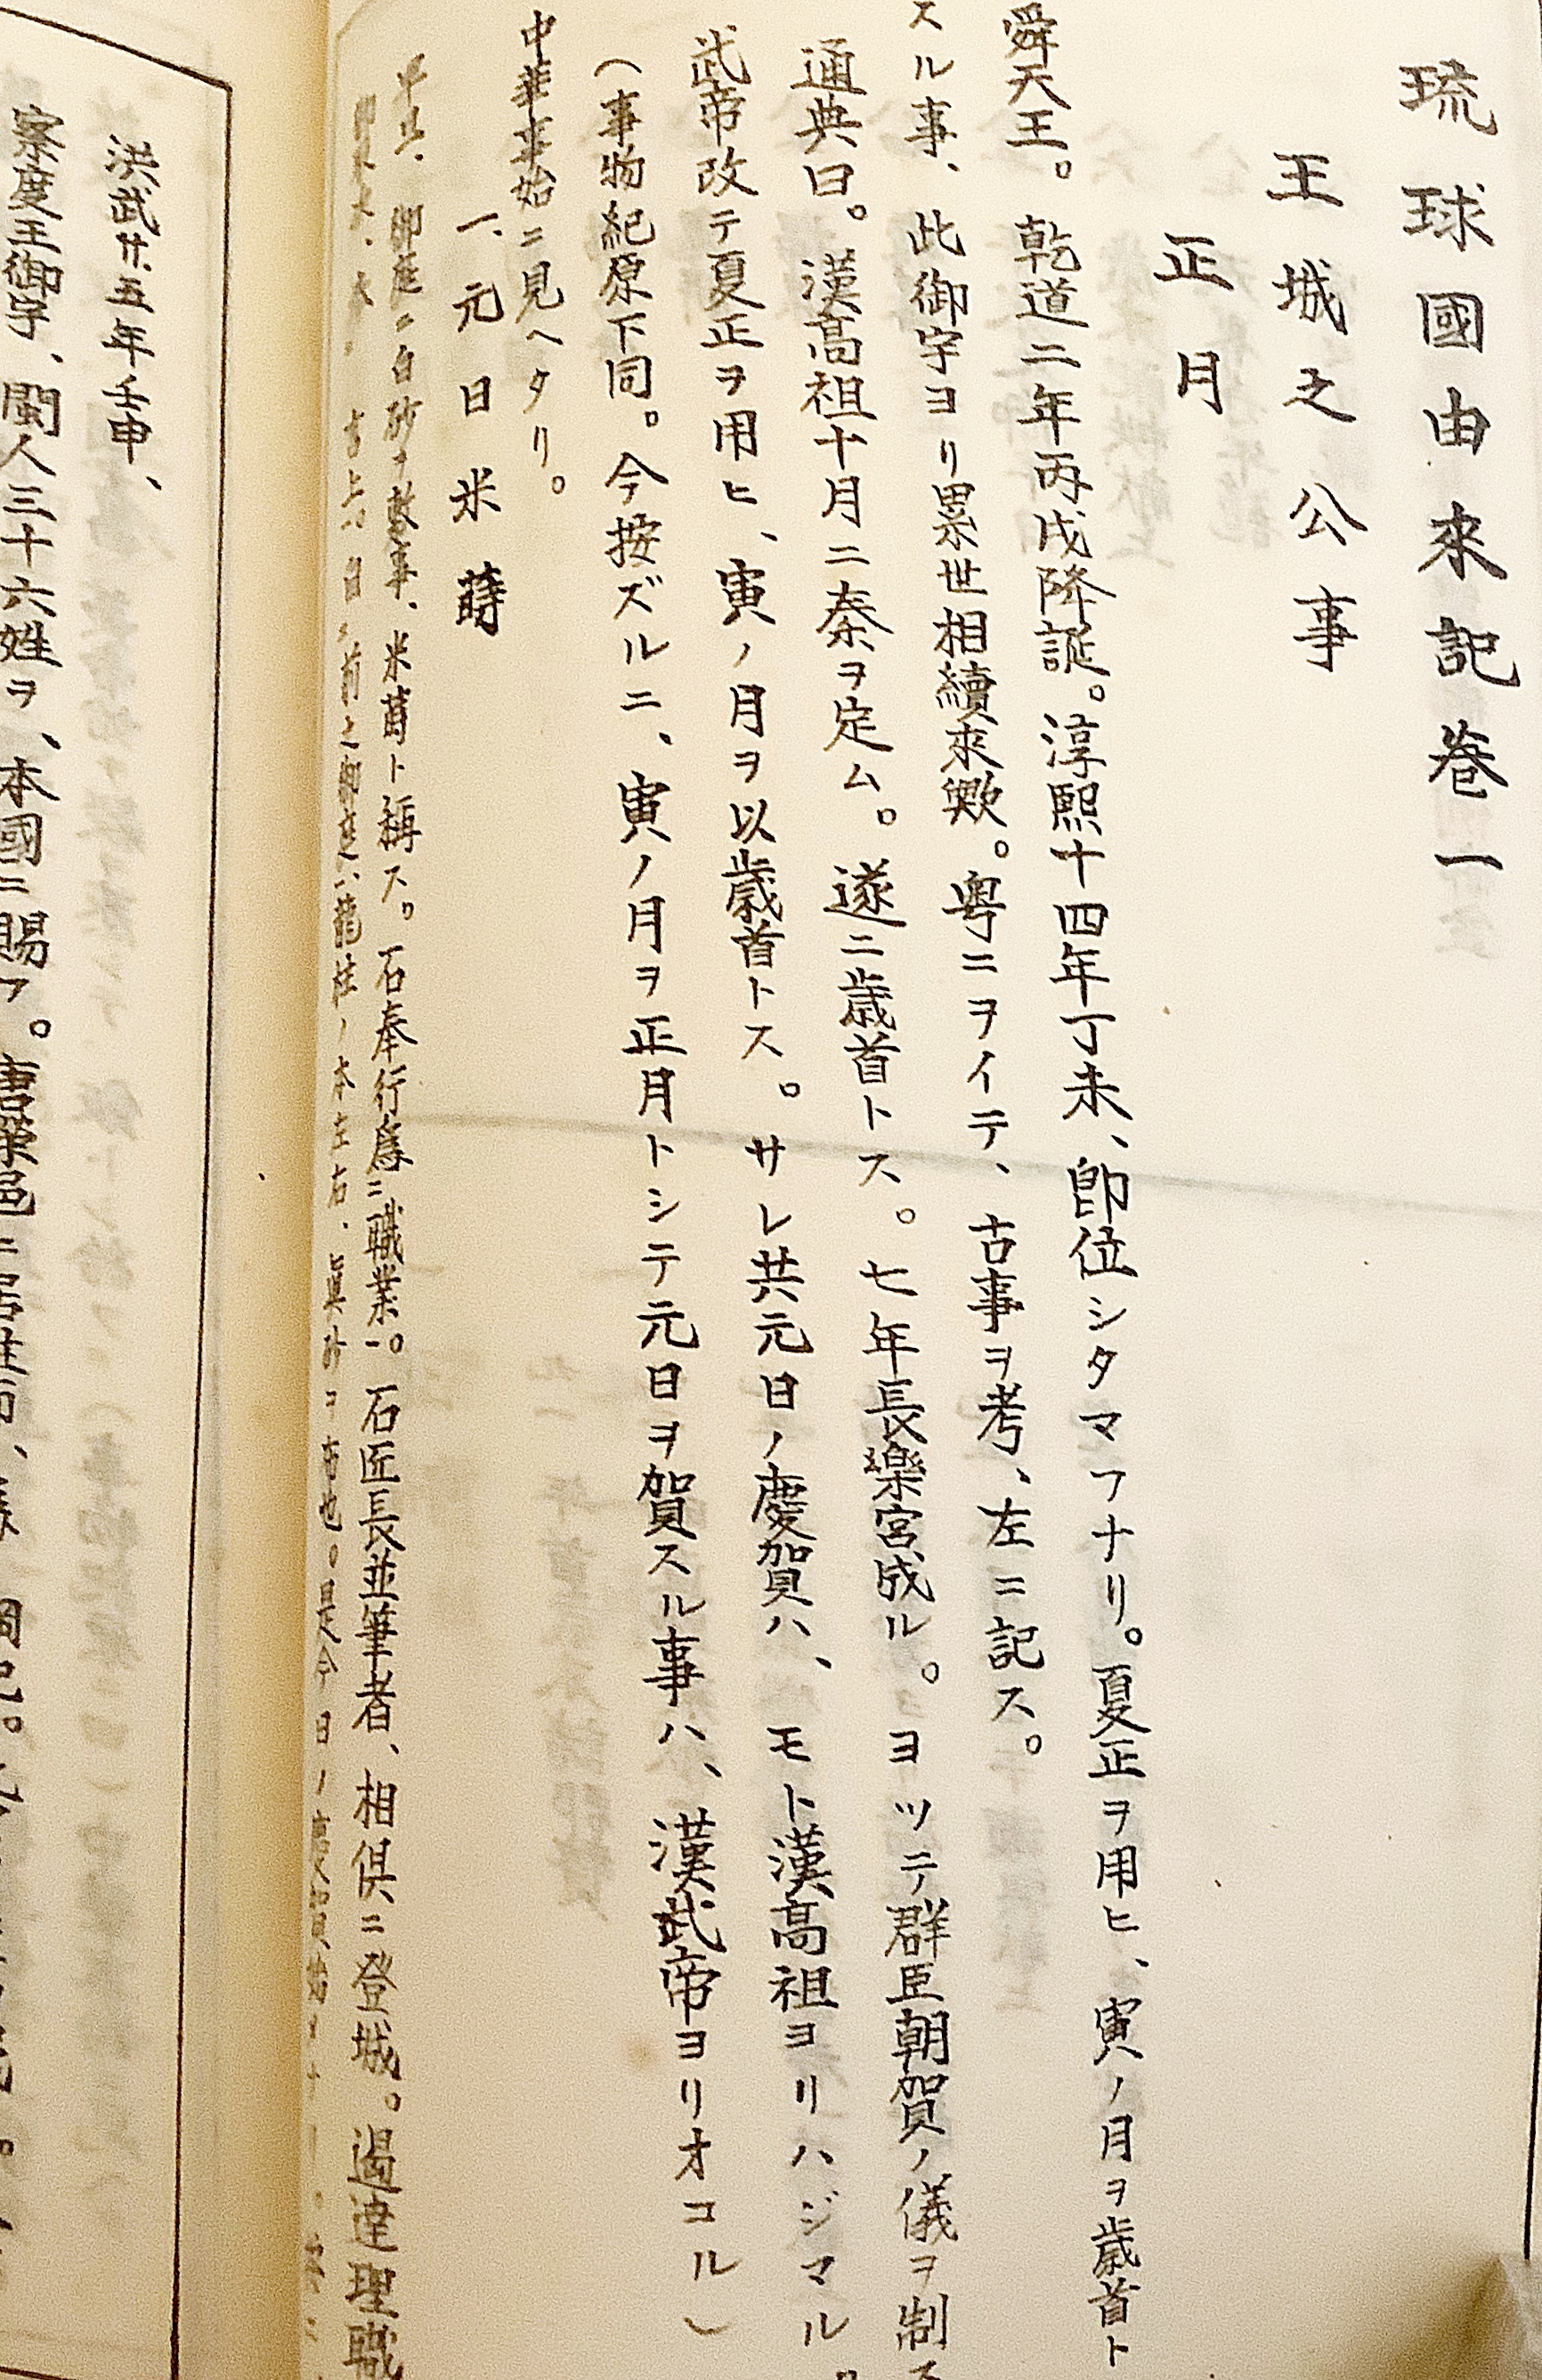 琉球國由來記巻一
王城之公事
正月
舜天王。乾道二年丙戌降誕。淳熙十四年丁未、即位シタマフナリ。夏正ヲ用ヒ、寅ノ月ヲ歳首ト
スル事、此御宇ヨリ累世相續來歟。粤ニヲイテ、古事ヲ考、左ニ記ス。
通典曰。漢高祖十月ニ秦ヲ定ム。遂ニ歳首トス。七年長樂宮成ル。ヨツテ群臣朝賀ノ儀ヲ制ス
武帝改テ夏正ヲ用ヒ、寅ノ月ヲ以歳首トス。サレ共元日ノ慶賀ハ、モト漢高祖ヨリハジマル。
(事物紀原下同。今按ズルニ、寅ノ月ヲ正月トシテ元日ヲ賀スル事ハ、漢武帝ヨリオコル)
中華事始ニ見ヘタリ。
一、元日米蒔
御庭ニ白砂ヲ敷事、米蒔ト稱ス。石奉行爲ニ職業一。石匠長並筆者、相倶ニ登城。過達理職
之御庭ハ龍柱ノ本左右、眞砂コ有也。是今日ノ慶賀
洪武廿五年壬申、
察度王御宇、閩人三十六姓ヲ、本國ニ賜フ。唐榮邑ニ居住